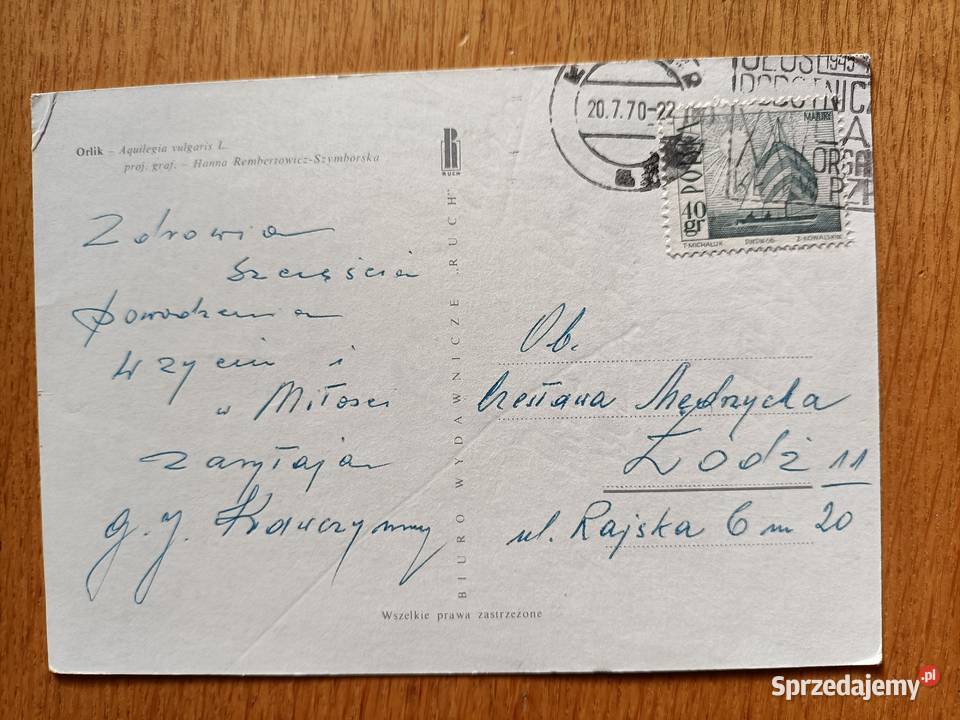 Orlik – Aquilegia vulgaris L.
proj. graf. – Hanna Rembertowicz-Szymborska
RUCH
BIURO WYDAWNICZE „RUCH”
Wszelkie prawa zastrzeżone
20.7.70-22
1945
ORGA
POLSKA
MAZURY
40
gr
T-MICHALUK
Z-KOWALSKI
Zdrowia
Szczęścia
Powodzenia
w życiu i
w Miłości
zasyłają
Ob.
Czesława Mędrzycka
Łódź 11
ul. Rajska 6 m 20
Sprzedajemy.pl